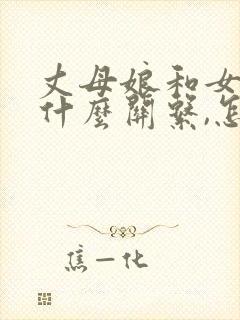 丈母娘和女
什麼關繫,怎
焦一化